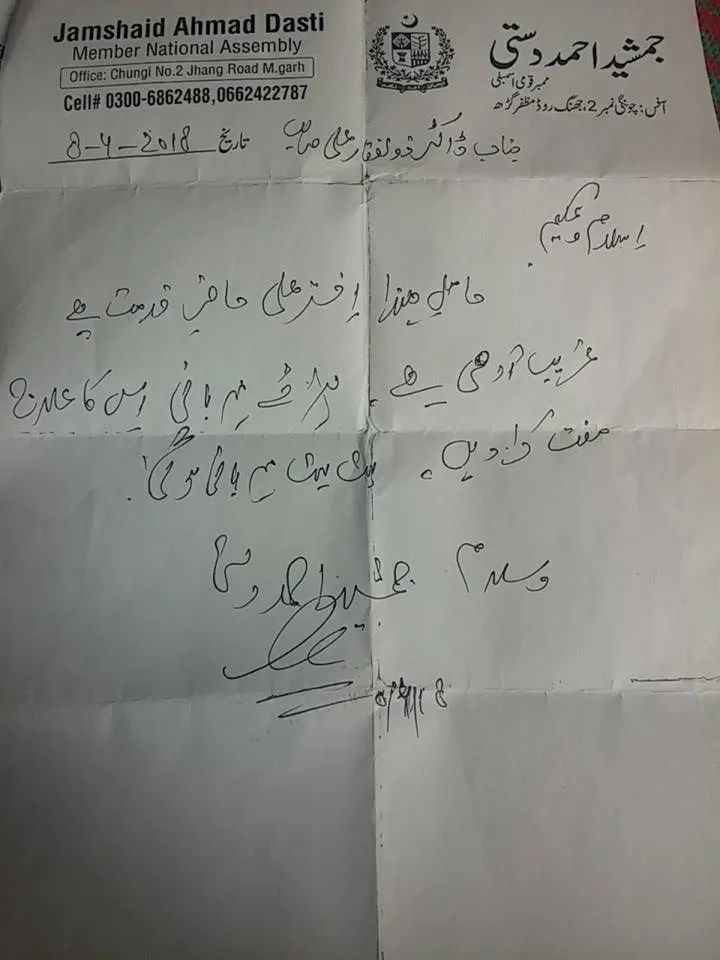 Jamshaid Ahmad Dasti
Member National Assembly
Office: Chungi No.2 Jhang Road M.garh
Cell# 0300-6862488,0662422787
جمشید احمد دستی
ممبر قومی اسمبلی
آفس: چونگی نمبر 2، جھنگ روڈ مظفر گڑھ
تاریخ 8-4-2018
جناب ڈاکٹر ذولفقار علی صاحب
اسلام وعلیکم
حامل ہذا اختر علی حاضر خدمت ہے
غریب آدمی ہے۔ برائے مہربانی اس کا علاج
مفت کرا دیں۔ بہت بہت مہربانی ہوگی۔
وسلام جمشید احمد دستی
8/4/18